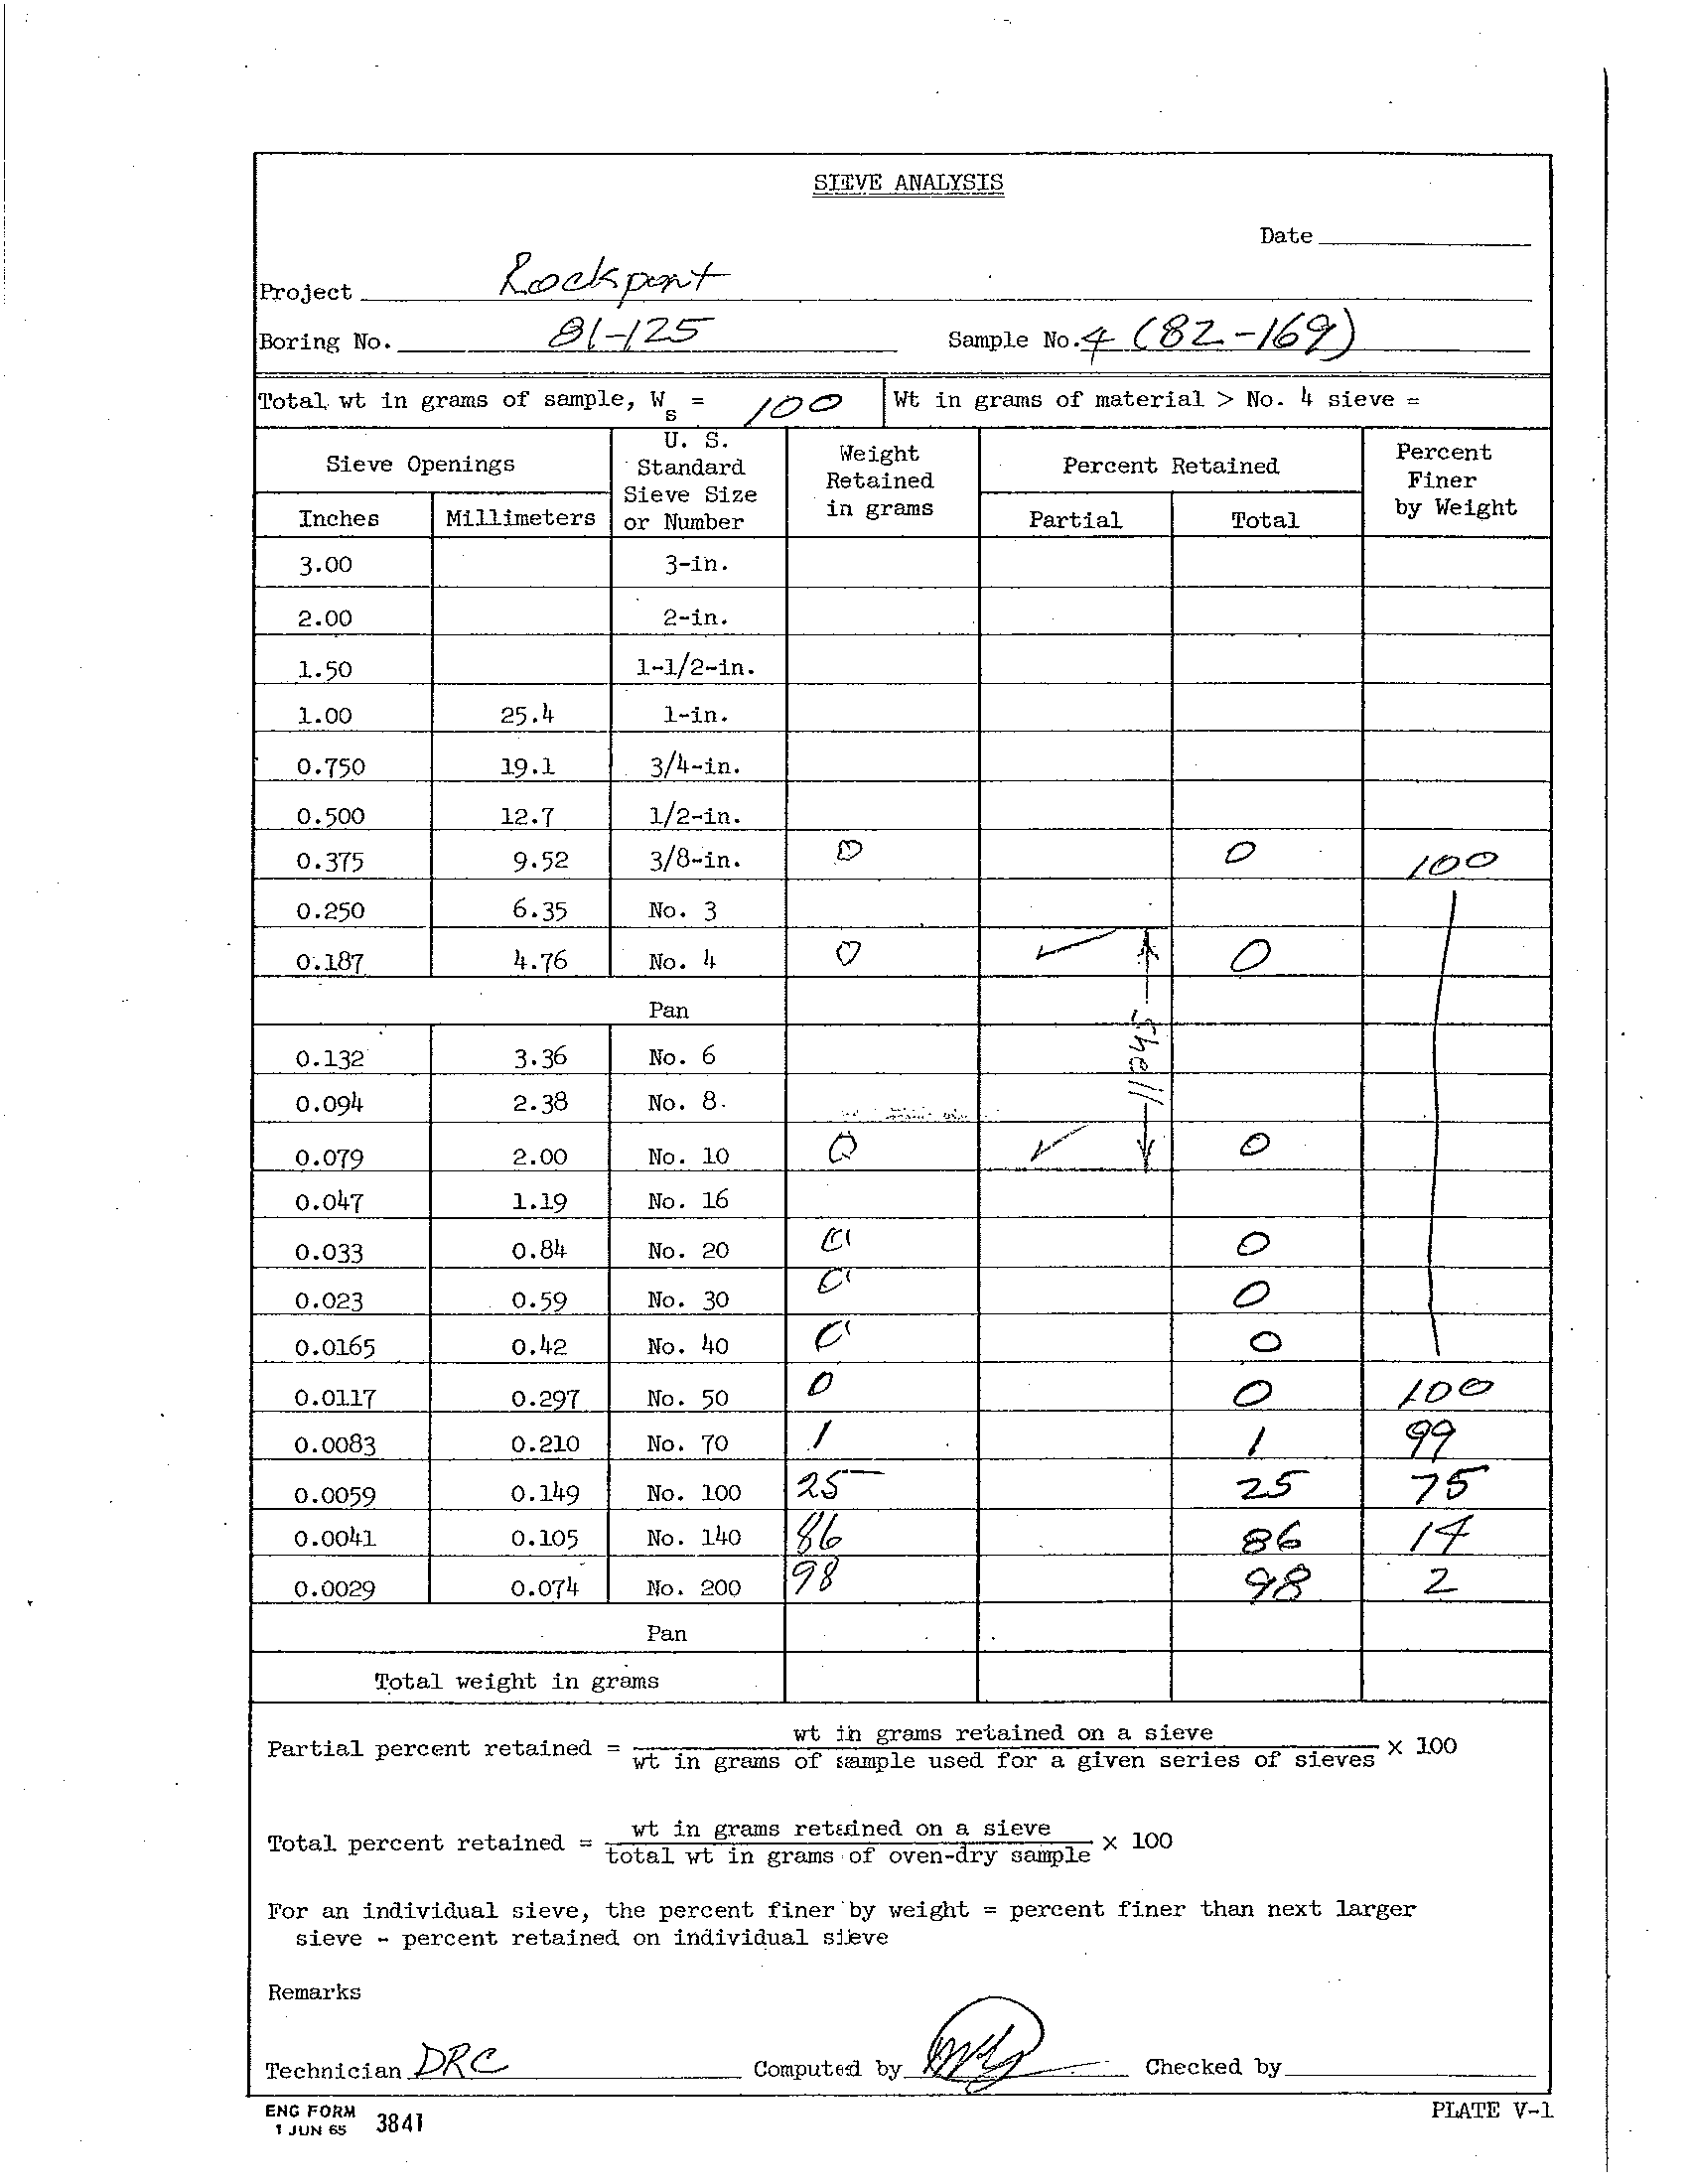 SIEVE ANALYSIS
Date
Project Rockport
Boring No. 81-125 Sample No. 4 (82-169)
Total wt in grams of sample, Ws = 100 Wt in grams of material > No. 4 sieve =
Sieve Openings U. S. Standard Sieve Size or Number Weight Retained in grams Percent Retained Percent Finer by Weight
Inches Millimeters Partial Total
3.00 3-in.
2.00 2-in.
1.50 1-1/2-in.
1.00 25.4 1-in.
0.750 19.1 3/4-in.
0.500 12.7 1/2-in.
0.375 9.52 3/8-in. 0 0 100
0.250 6.35 No. 3
0.187 4.76 No. 4 0 ✓ 0
Pan
Shell
0.132 3.36 No. 6
0.094 2.38 No. 8
0.079 2.00 No. 10 0 ✓ 0
0.047 1.19 No. 16
0.033 0.84 No. 20 0 0
0.023 0.59 No. 30 0 0
0.0165 0.42 No. 40 0 0
0.0117 0.297 No. 50 0 0 100
0.0083 0.210 No. 70 1 1 99
0.0059 0.149 No. 100 25 25 75
0.0041 0.105 No. 140 86 86 14
0.0029 0.074 No. 200 98 98 2
Pan
Total weight in grams
Partial percent retained = wt in grams retained on a sieve / wt in grams of sample used for a given series of sieves × 100
Total percent retained = wt in grams retained on a sieve / total wt in grams of oven-dry sample × 100
For an individual sieve, the percent finer by weight = percent finer than next larger
sieve - percent retained on individual sieve
Remarks
Technician DRC Computed by Checked by
ENG FORM 3841
1 JUN 65
PLATE V-1